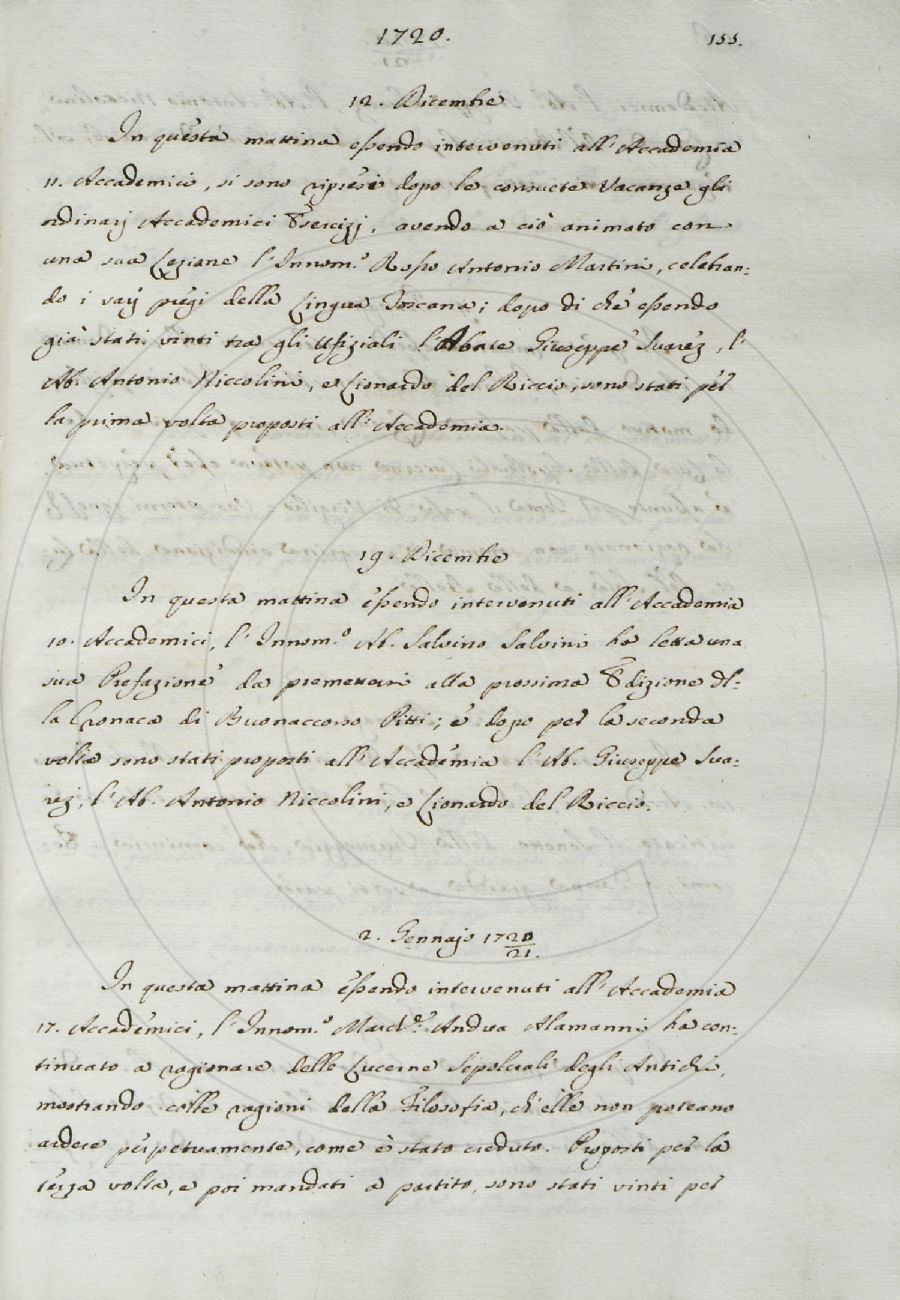 1720.
155.
12. Dicembre
In questa mattina essendo intervenuti all'Accademia
11. Accademici, si sono ripresi dopo le consuete Vacanze gli
ordinarj Accademici Esercizj, avendo a ciò animato con
una sua Lezione l'Innom.º Rosso Antonio Martini, celebran:
do i varj pregi della Lingua Toscana; dopo di chè essendo
già stati vinti tra gli Ufiziali l'Abate Giuseppe Suarez, l'
Ab. Antonio Niccolini, e Lionardo del Riccio, sono stati per
la prima volta proposti all'Accademia.
19. Dicembre
In questa mattina essendo intervenuti all'Accademia
10. Accademici, l'Innom.º Ab. Salvino Salvini ha letta una
sua Prefazione da premettersi alla prossima Edizione del:
la Cronaca di Buonaccorso Pitti; e dopo per la seconda
volta sono stati proposti all'Accademia l'Ab. Giuseppe Sua:
rez, l'Ab. Antonio Niccolini, e Lionardo del Riccio.
2. Gennajo 1720/21.
In questa mattina essendo intervenuti all'Accademia
17. Accademici, l'Innom.º March.e Andrea Alamanni ha con:
tinuato a ragionare delle Lucerne Sepolcrali degli Antichi,
mostrando colle ragioni della Filosofia, ch'elle non poteano
ardere perpetuamente, come è stato creduto. Proposti per la
terza volta, e poi mandati a partito, sono stati vinti per